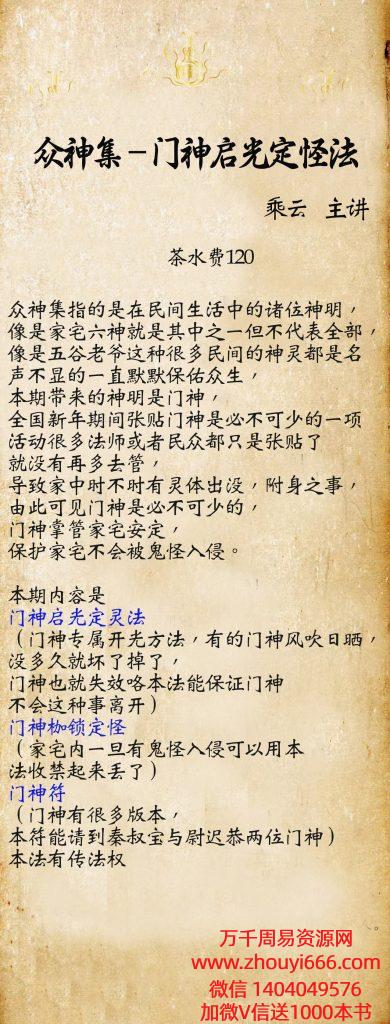 众神集－门神启光定怪法
乘云 主讲
茶水费120
众神集指的是在民间生活中的诸位神明，
像是家宅六神就是其中之一但不代表全部，
像是五谷老爷这种很多民间的神灵都是名
声不显的一直默默保佑众生，
本期带来的神明是门神，
全国新年期间张贴门神是必不可少的一项
活动很多法师或者民众都只是张贴了
就没有再多去管，
导致家中时不时有灵体出没，附身之事，
由此可见门神是必不可少的，
门神掌管家宅安定，
保护家宅不会被鬼怪入侵。
本期内容是
门神启光定灵法
（门神专属开光方法，有的门神风吹日晒，
没多久就坏了掉了，
门神也就失效咯本法能保证门神
不会这种事离开）
门神枷锁定怪
（家宅内一旦有鬼怪入侵可以用本
法收禁起来丢了）
门神符
（门神有很多版本，
本符能请到秦叔宝与尉迟恭两位门神）
本法有传法权
。
万千周易资源网
www.zhouyi666.com
微信 1404049576
加微V信送1000本书